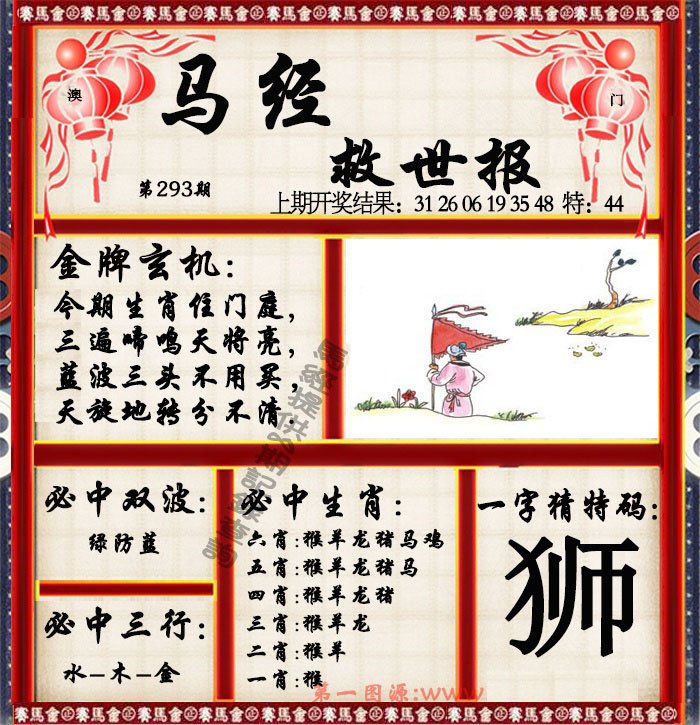 澳
门
马经
救世报
第293期
上期开奖结果：31 26 06 19 35 48 特：44
金牌玄机：
今期生肖住门庭，
三遍啼鸣天将亮，
蓝波三头不用买，
天旋地转分不清.
必中双波：
绿防蓝
必中三行：
水-木-金
必中生肖：
六肖:猴羊龙猪马鸡
五肖:猴羊龙猪马
四肖:猴羊龙猪
三肖:猴羊龙
二肖:猴羊
一肖:猴
一字猜特码：
狮
第一图源:www